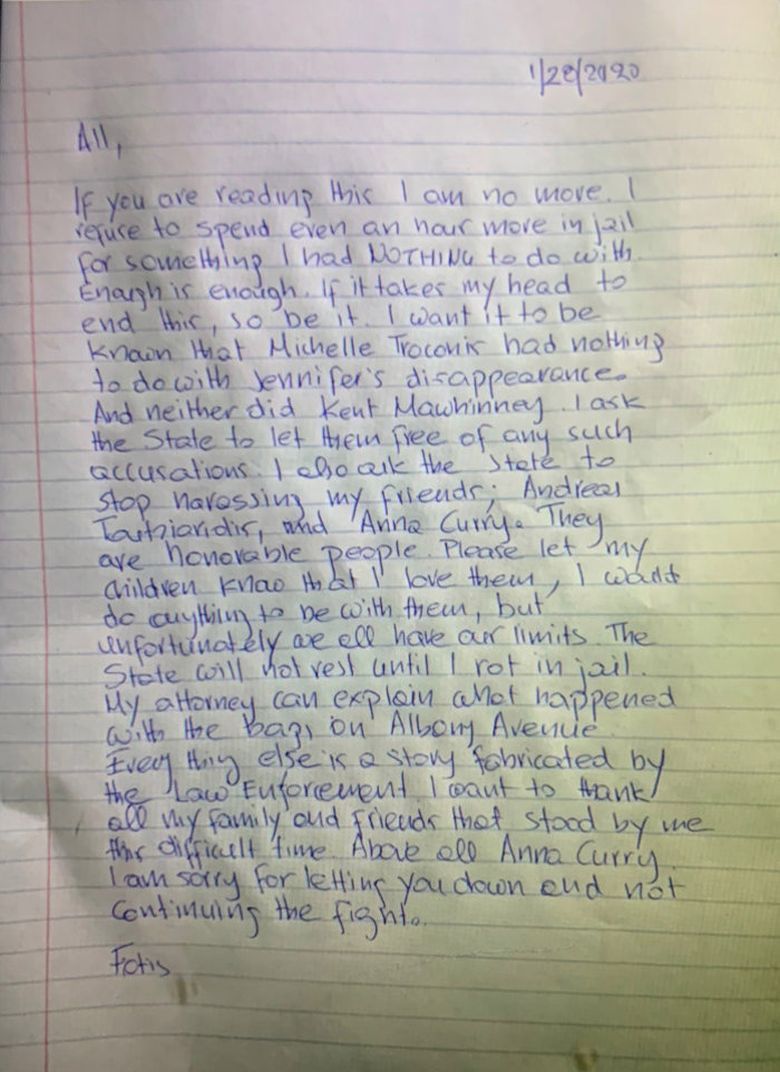 1/28/2020
All,
If you are reading this I am no more. I
refuse to spend even an hour more in jail
for something I had NOTHING to do with
Enough is enough. If it takes my head to
end this, so be it. I want it to be
known that Michelle Troconis had nothing
to do with Jennifer's disappearance.
And neither did Kent Mawhinney. I ask
the State to let them free of any such
accusations. I also ask the State to
stop harassing my friends; Andreas
Toutziaridis, and Anna Curry. They
are honorable people. Please let my
children know that I love them, I would
do anything to be with them, but
unfortunately we all have our limits. The
State will not rest until I rot in jail.
My attorney can explain what happened
with the bags on Albany Avenue.
Every thing else is a story fabricated by
the Law Enforcement. I want to thank
all my family and friends that stood by me
this difficult time. Above all Anna Curry.
I am sorry for letting you down and not
continuing the fight.
Fotis